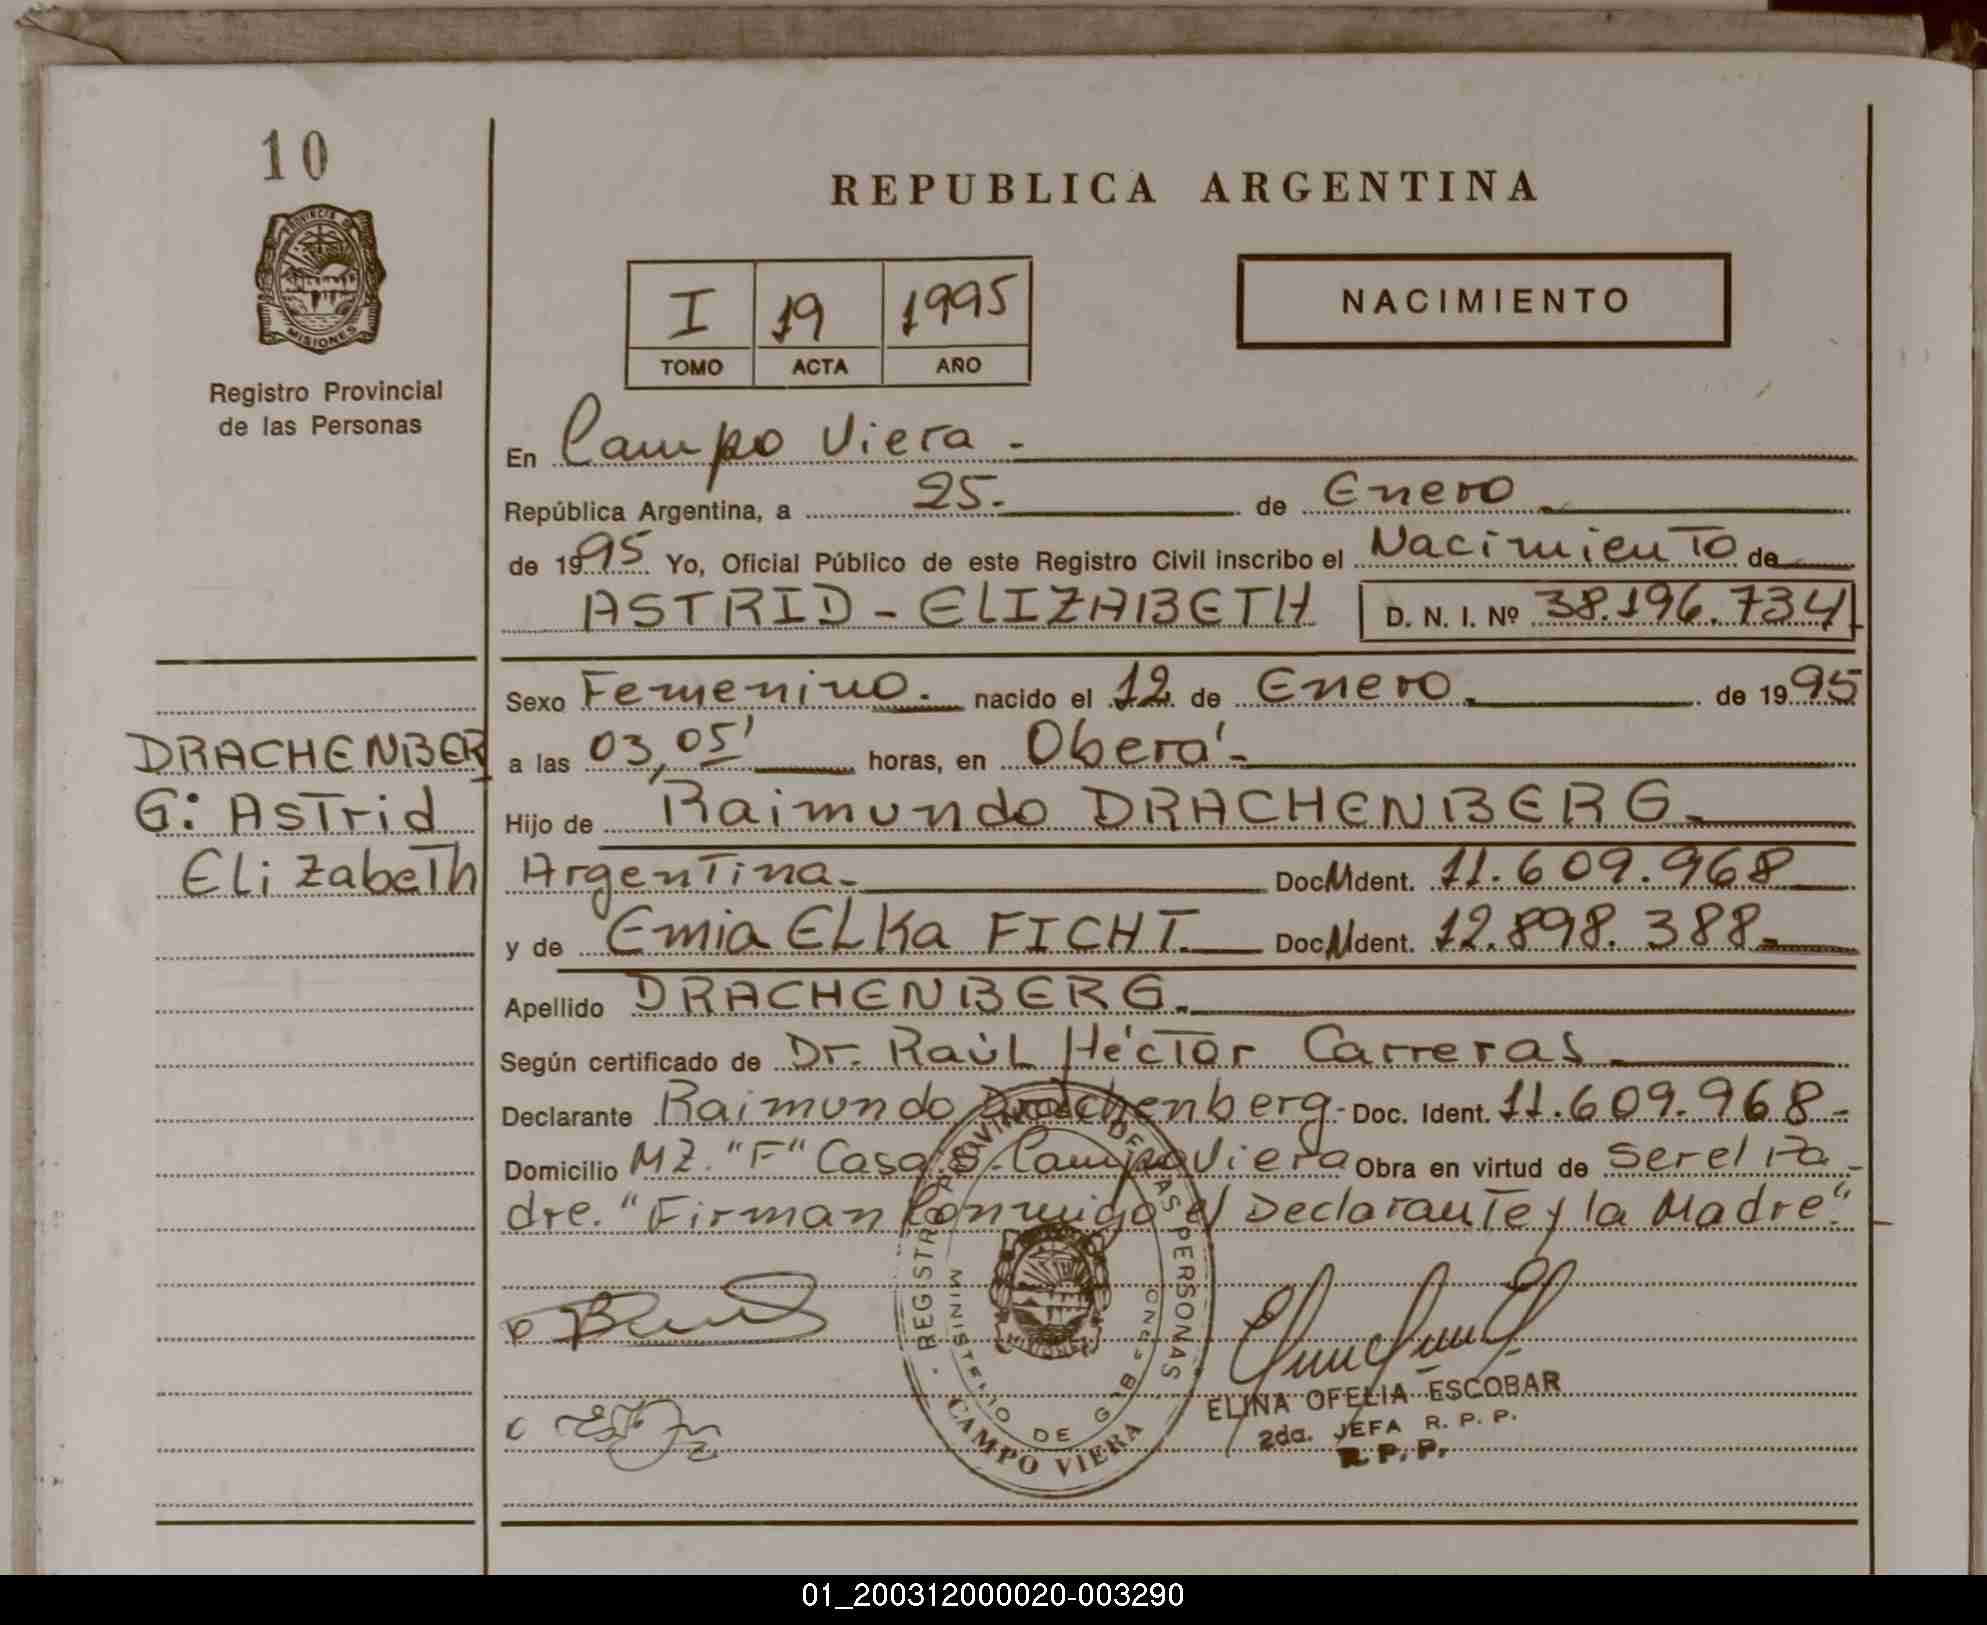 10
PROVINCIA DE
MISIONES
Registro Provincial
de las Personas
REPUBLICA ARGENTINA
I 19 1995
TOMO ACTA AÑO
NACIMIENTO
En Campo Viera -
República Argentina, a 25. de Enero
de 1995 Yo, Oficial Público de este Registro Civil inscribo el Nacimiento de
ASTRID - ELIZABETH D. N. I. Nº 38.196.734
Sexo Femenino. nacido el 12 de Enero. de 1995
DRACHENBER
G: Astrid
Elizabeth
a las 03,05' horas, en Oberá -
Hijo de Raimundo DRACHENBERG -
Argentina - Doc. Ident. 11.609.968
y de Emia ELKa FICHT. Doc. Ident. 12.898.388 -
Apellido DRACHENBERG.
Según certificado de Dr. Raúl Héctor Carreras
Declarante Raimundo Drachenberg - Doc. Ident. 11.609.968 -
Domicilio MZ. "F" Casa Campo Viera Obra en virtud de Ser el Pa-
dre. "Firman Conmigo el Declarante y la Madre".
REGISTRO PROVINCIAL DE LAS PERSONAS
MINISTERIO DE GOB
MISIONES
CAMPO VIERA
ELINA OFELIA ESCOBAR
2da. JEFA R. P. P.
R. P. P.
01_200312000020-003290